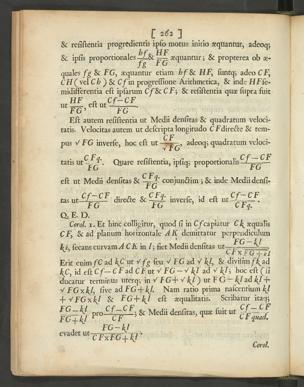 [ 262 ]
& resistentia progredientis ipso motus initio æquantur, adeoq;
& ipsis proportionales hf/fg & HF/FG æquantur; & propterea ob æ-
quales fg & FG, æquantur etiam hf & HF, suntq; adeo CF,
CH (vel Ch) & Cf in progressione Arithmetica, & inde HF se-
midifferentia est ipsarum Cf & CF; & resistentia quæ supra fuit
ut HF/FG, est ut Cf−CF/FG.
Est autem resistentia ut Medii densitas & quadratum veloci-
tatis. Velocitas autem ut descripta longitudo CF directe & tem-
pus √FG inverse, hoc est ut CF/√FG, adeoq; quadratum veloci-
tatis ut CFq./FG. Quare resistentia, ipsiq; proportionalis Cf−CF/FG
est ut Medii densitas & CFq./FG conjunctim; & inde Medii densi-
tas ut Cf−CF/FG directe & CFq./FG inverse, id est ut Cf−CF/CFq.
Q. E. D.
Corol. 1. Et hinc colligitur, quod si in Cf capiatur Ck æqualis
CF, & ad planum horizontale AK demittatur perpendiculum
ki, secans curvam ACK in l; fiet Medii densitas ut FG−kl/CF×FG+kl
Erit enim fC ad kC ut √fg seu √FG ad √kl, & divisim fk ad
kC, id est Cf−CF ad CF ut √FG−√kl ad √kl; hoc est (si
ducatur terminus uterq; in √FG+√kl) ut FG−kl ad kl+
√FG×kl, sive ad FG+kl. Nam ratio prima nascentium kl
+√FG×kl & FG+kl est æqualitatis. Scribatur itaq;
FG−kl/FG+kl pro Cf−CF/CF; & Medii densitas, quæ fuit ut Cf−CF/CF quad.
evadet ut FG−kl/CF×FG+kl.
Corol.